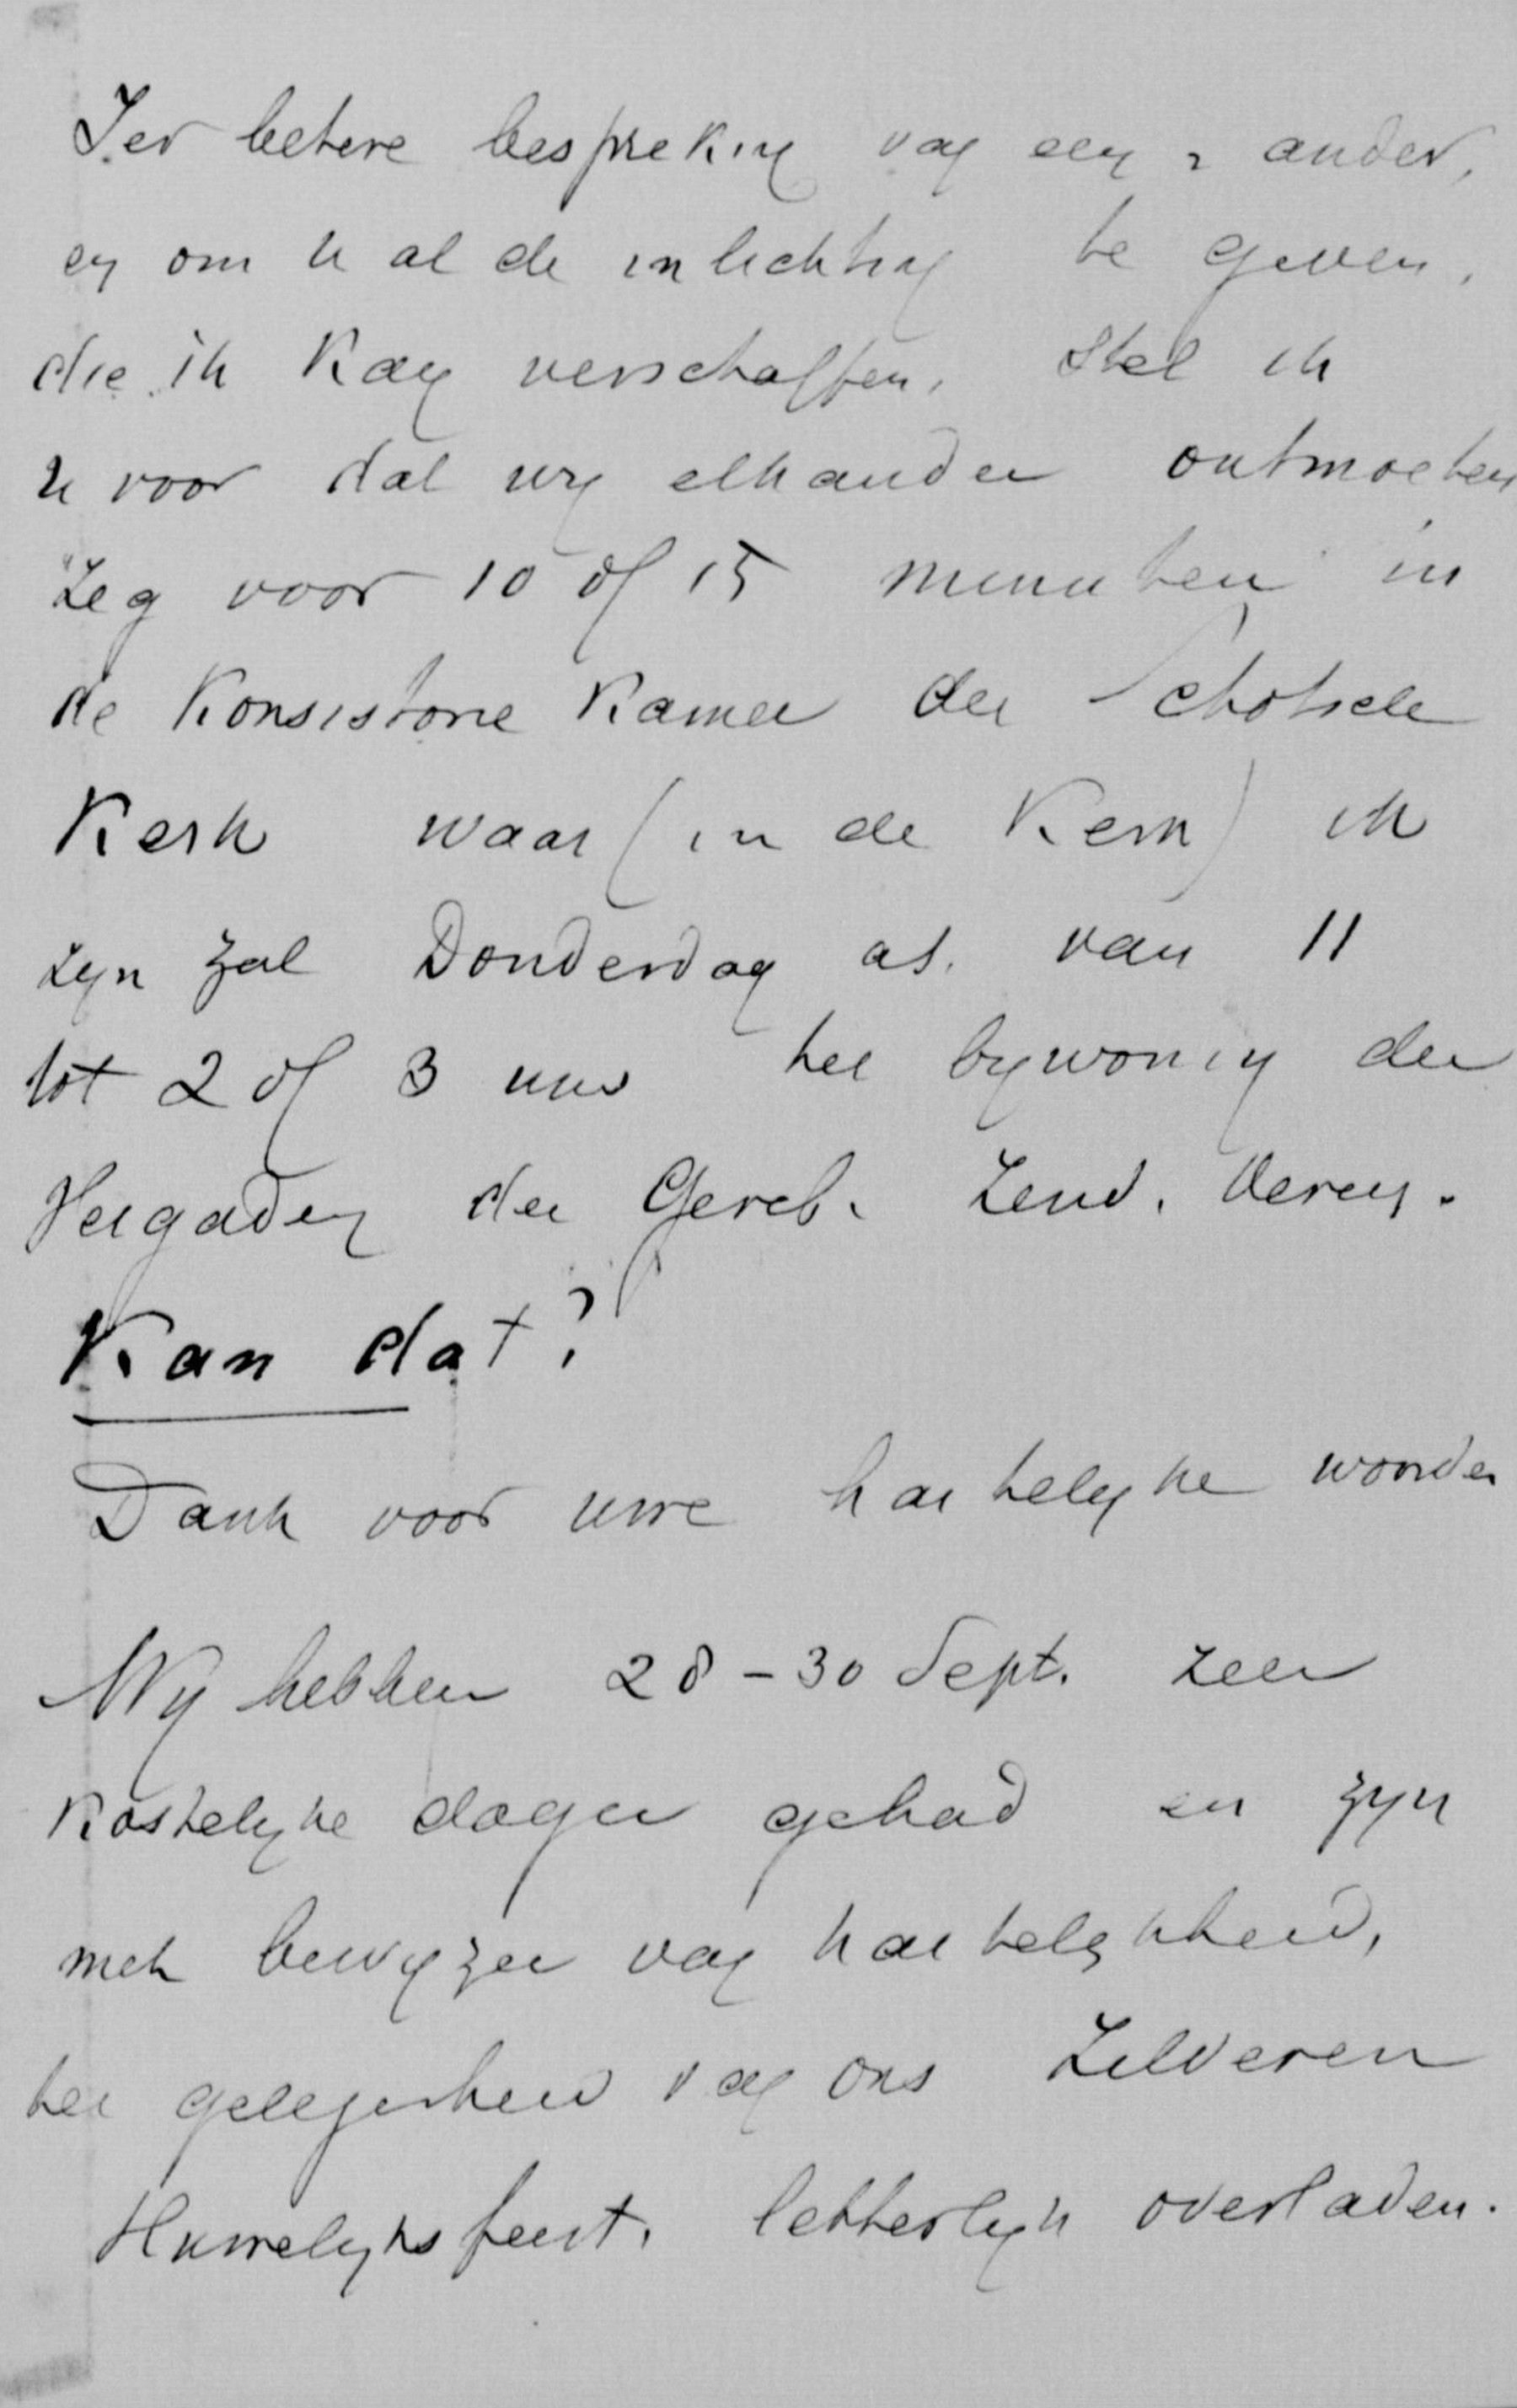 Ter betere bespreking van een & ander,
en om u al de inlichting te geven,
die ik kan verschaffen, stel ik
u voor dat wy elkander ontmoeten
zeg voor 10 of 15 minuten in
de Konsistorie Kamer der Schotsche
Kerk waar (in de Kerk) ik
zyn zal Donderdag as. van 11
tot 2 of 3 uur ter bywoning der
Vergadering der Geref. Zend. Vereen.
Kan dat?
Dank voor uwe hartelyke woorden
Wy hebben 28-30 Sept. zeer
kostelyke dagen gehad en zyn
met bewyzen van hartelykheid,
ter gelegenheid van ons Zilveren
Huwelyksfeest, letterlyk overladen.